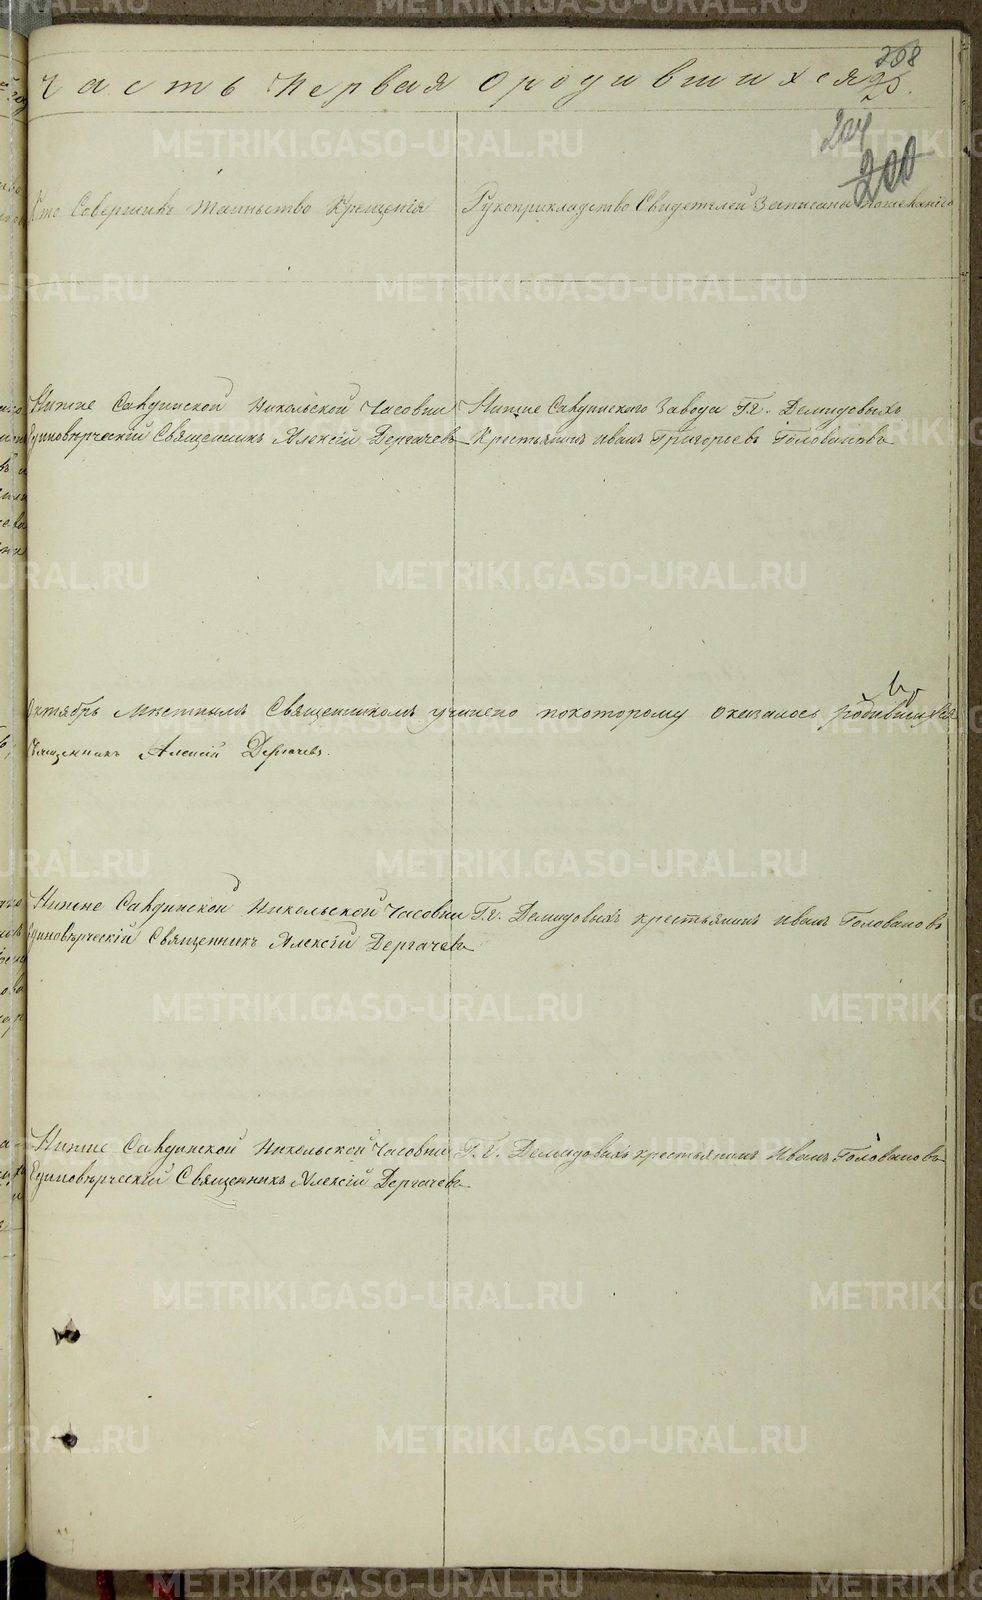 Часть Первая ородившихся
208
204
200
Кто Совершилъ таинство Крещенія
Рукоприкладство Свидетелей Записаны
Нижне Салдинской Никольской Часовни
Единовѣрческій Священникъ Алексій Дергачевъ
Нижне Салдинского Завода Гг. Демидовыхъ
Крестьянинъ Иванъ Григорьевъ Головановъ
Октябрь мѣстнымъ Священникомъ учинено покоторому оказалось родившихся
Священникъ Алексій Дергачевъ.
Нижне Салдинской Никольской Часовни
Единовѣрческій Священникъ Алексій Дергачевъ
Гг. Демидовыхъ крестьянинъ Иванъ Головановъ
Нижне Салдинской Никольской Часовни
Единовѣрческій Священникъ Алексій Дергачевъ
Гг. Демидовыхъ крестьянинъ Иванъ Головановъ
METRIKI.GASO-URAL.RU